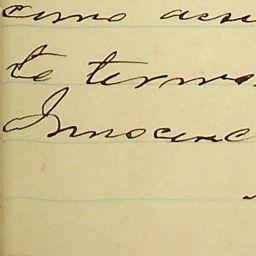 como ase
te terms
Innocenc